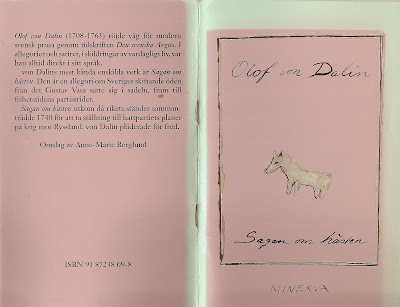 Olof von Dalin (1708-1763) röjde väg för modern
svensk prosa genom tidskriften Den svenska Argus. I
allegorier och satirer, i skildringar av vardagligt liv, var
han alltid direkt i sitt språk.
von Dalins mest kända enskilda verk är Sagan om
hästen. Den är en allegori om Sveriges skiftande öden
från det Gustav Vasa satte sig i sadeln, fram till
frihetstidens partistrider.
Sagan om hästen utkom då rikets ständer samman-
trädde 1740 för att ta ställning till hattpartiets planer
på krig mot Ryssland. von Dalin pläderade för fred.
Omslag av Anne-Marie Berglund
ISBN 91 87238 09-8
Olof von Dalin
Sagan om hästen
MINERVA